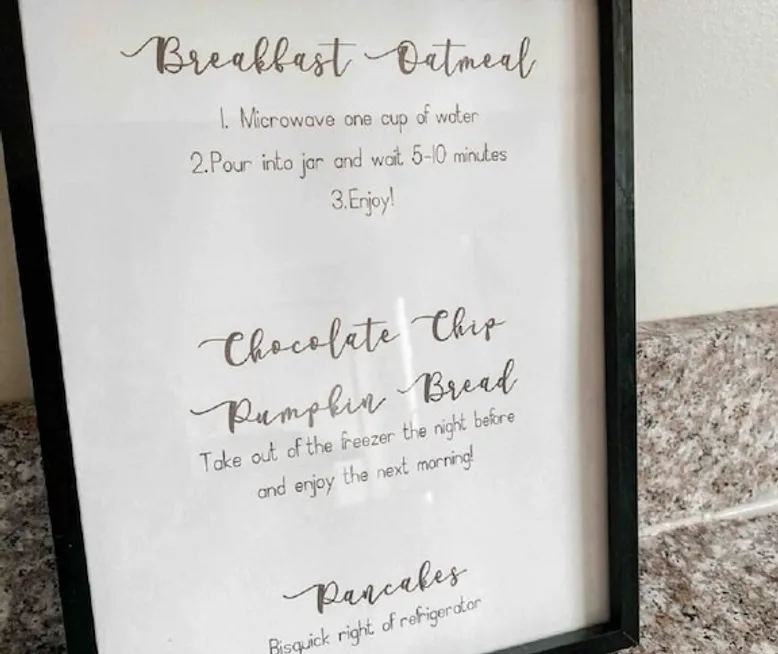 Breakfast Oatmeal
1. Microwave one cup of water
2.Pour into jar and wait 5-10 minutes
3.Enjoy!
Chocolate Chip
Pumpkin Bread
Take out of the freezer the night before
and enjoy the next morning!
Pancakes
Bisquick right of refrigerator